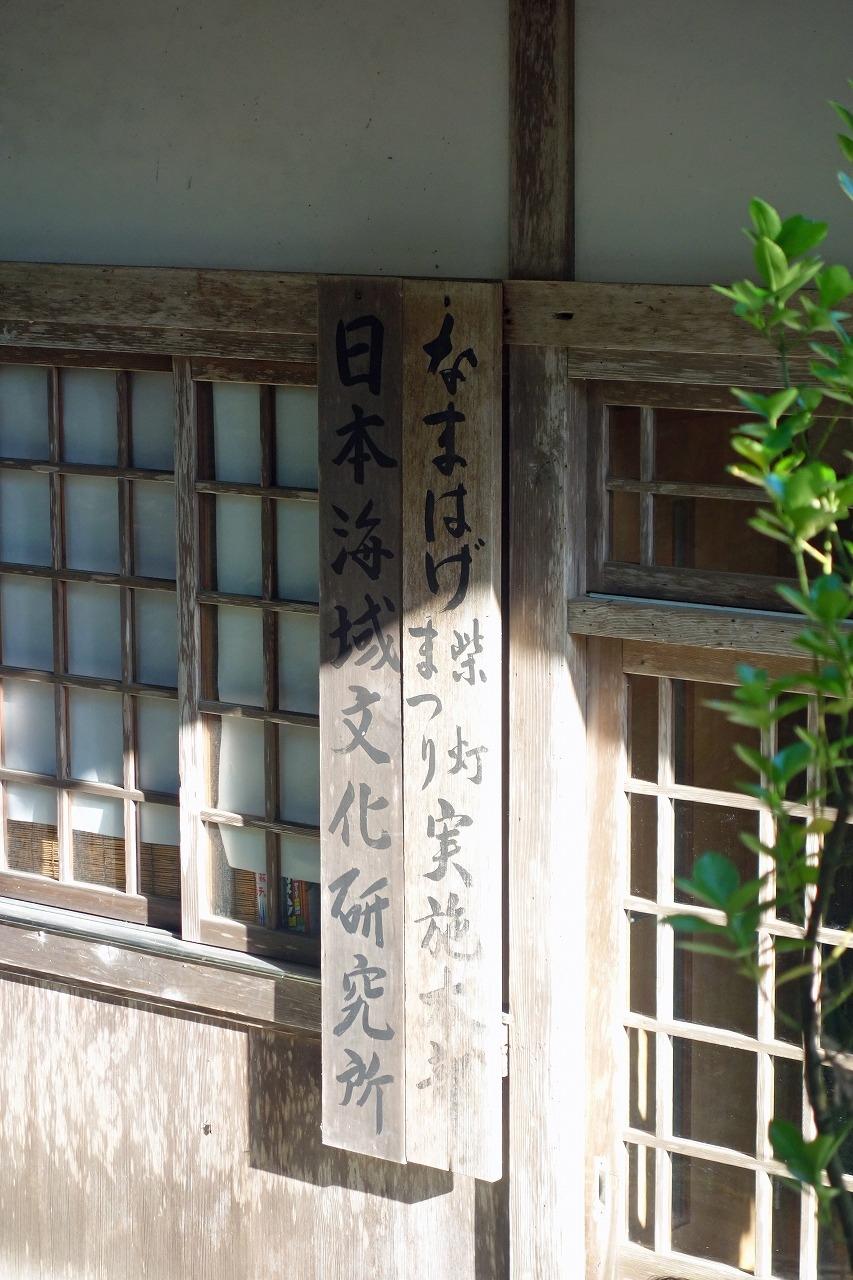 なまはげ柴灯まつり実施本部
日本海域文化研究所